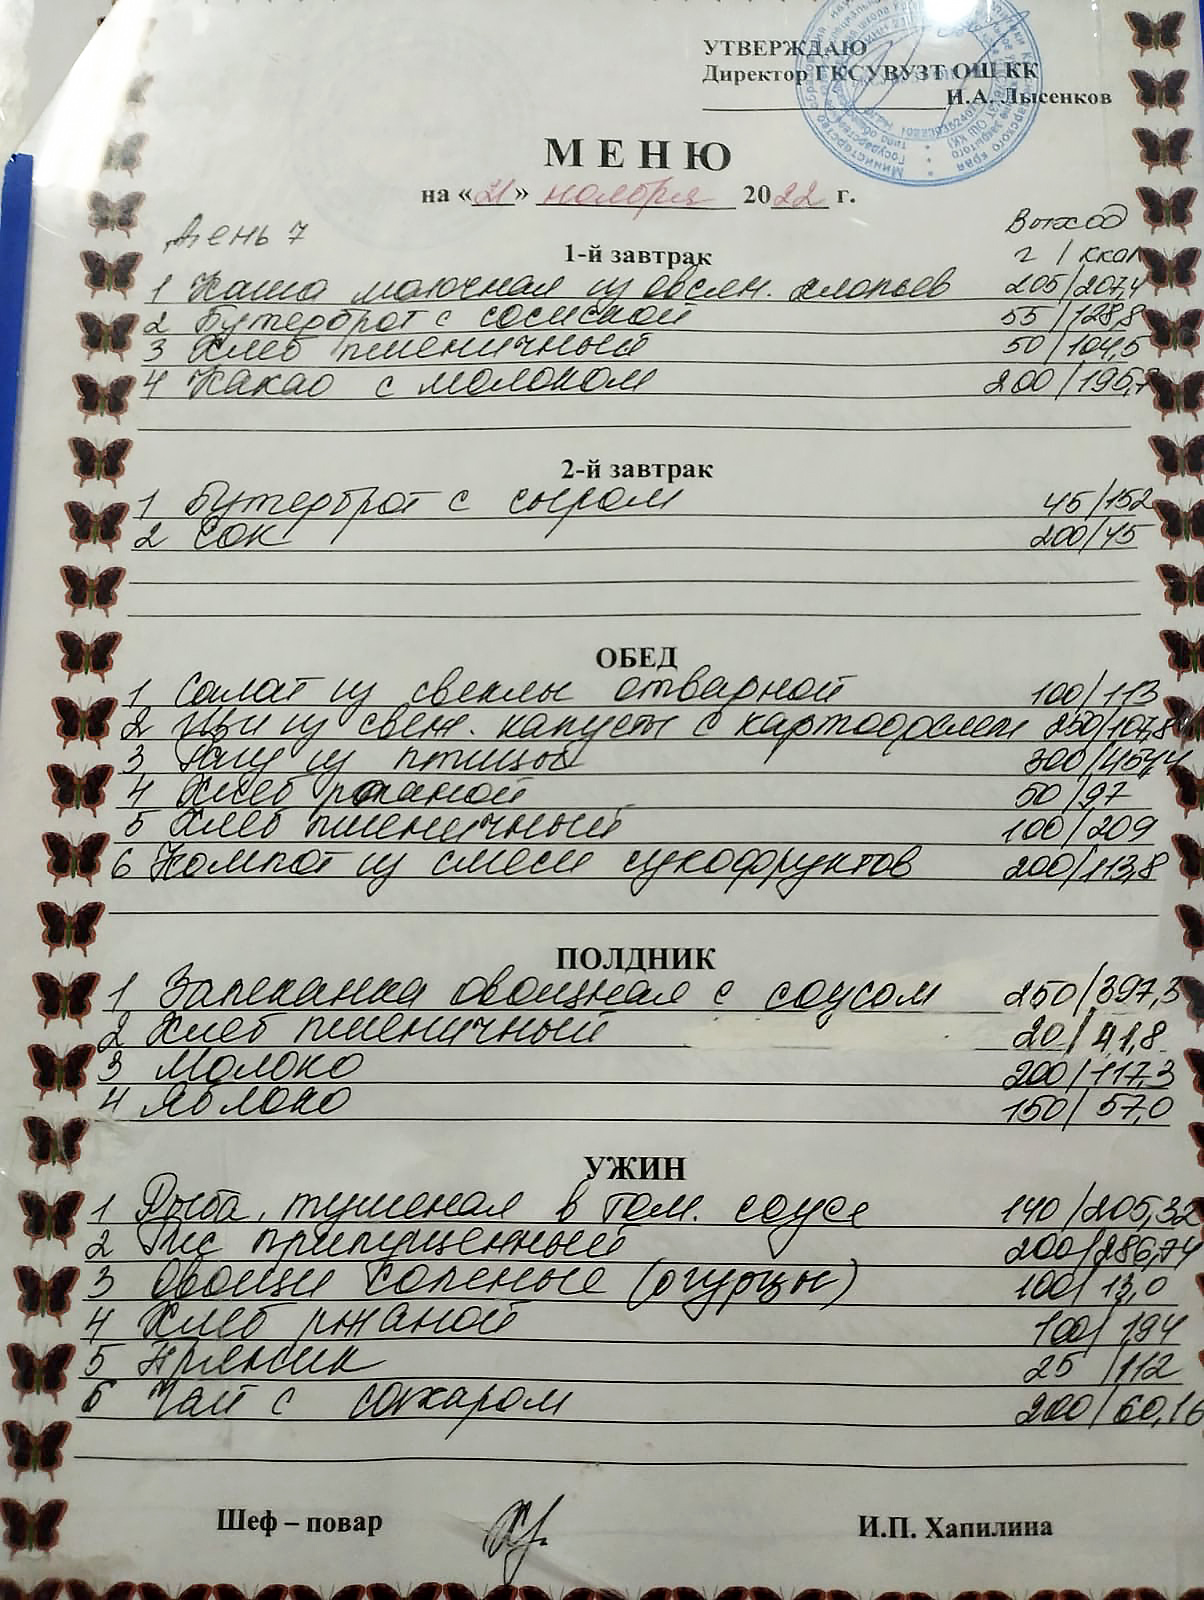 УТВЕРЖДАЮ
Директор ГКСУВУЗТ ОШ КК
И.А. Лысенков
МЕНЮ
на «21» ноября 2022 г.
День 7 Выход
1-й завтрак г / ккал
1 Каша молочная из овсян. хлопьев 205/207,4
2 Бутерброт с сосиской 55/128,8
3 Хлеб пшеничный 50/104,5
4 Какао с молоком 200/195,7
2-й завтрак
1 Бутерброт с сыром 45/152
2 Сок 200/45
ОБЕД
1 Салат из свеклы отварной 100/113
2 Щи из свеж. капусты с картофелем 250/107,8
3 Рагу из птицы 300/454,4
4 Хлеб ржаной 50/97
5 Хлеб пшеничный 100/209
6 Компот из смеси сухофруктов 200/113,8
ПОЛДНИК
1 Запеканка овощная с соусом 250/397,3
2 Хлеб пшеничный 20/41,8
3 Молоко 200/117,3
4 Яблоко 150/57,0
УЖИН
1 Рыба, тушеная в том. соусе 140/205,32
2 Рис припущенный 200/286,74
3 Овощи соленые (огурцы) 100/13,0
4 Хлеб ржаной 100/194
5 Пряник 25/112
6 Чай с сахаром 200/60,16
Шеф – повар И.П. Хапилина